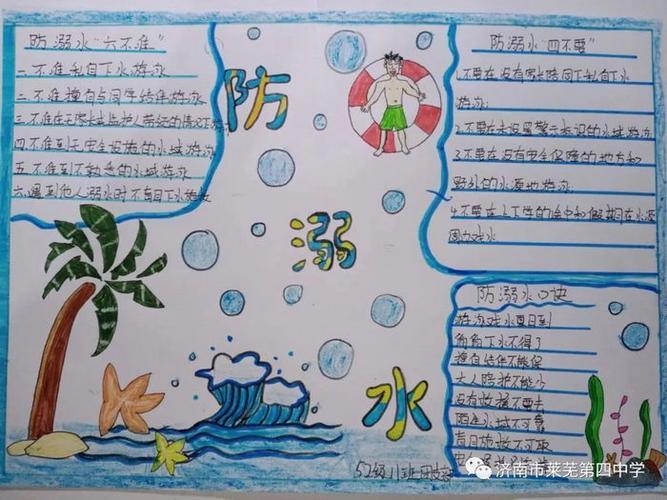 防溺水"六不准"
一.不准私自下水游泳
二.不准擅自与同学结伴游泳
三.不准在无家长或监护人带领的情况下游泳
四.不准到无安全设施的水域游泳
五.不准到不熟悉的水域游泳
六.遇到他人溺水时不盲目下水施救
防
溺
水
防溺水"四不要"
1.不要在没有家长陪同下私自下水
游泳:
2.不要在未设置警示标识的水域游泳
3.不要在没有安全保障的地方和
野外的水源地游泳
4.不要在上下学的途中和假期在水源
周边戏水
防溺水口诀
游泳戏水夏日到
私自下水不得了
擅自结伴不能保
大人陪护不能少
没有救援不要去
陌生水域不可靠
盲目施救不可取
52级11班
济南市莱芜第四中学